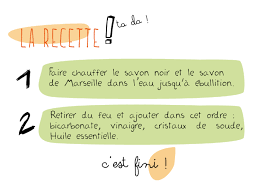 LA RECETTE !
ta da !
1 Faire chauffer le savon noir et le savon
de Marseille dans l'eau jusqu'à ébullition.
2 Retirer du feu et ajouter dans cet ordre :
bicarbonate, vinaigre, cristaux de soude,
Huile essentielle.
c'est fini !